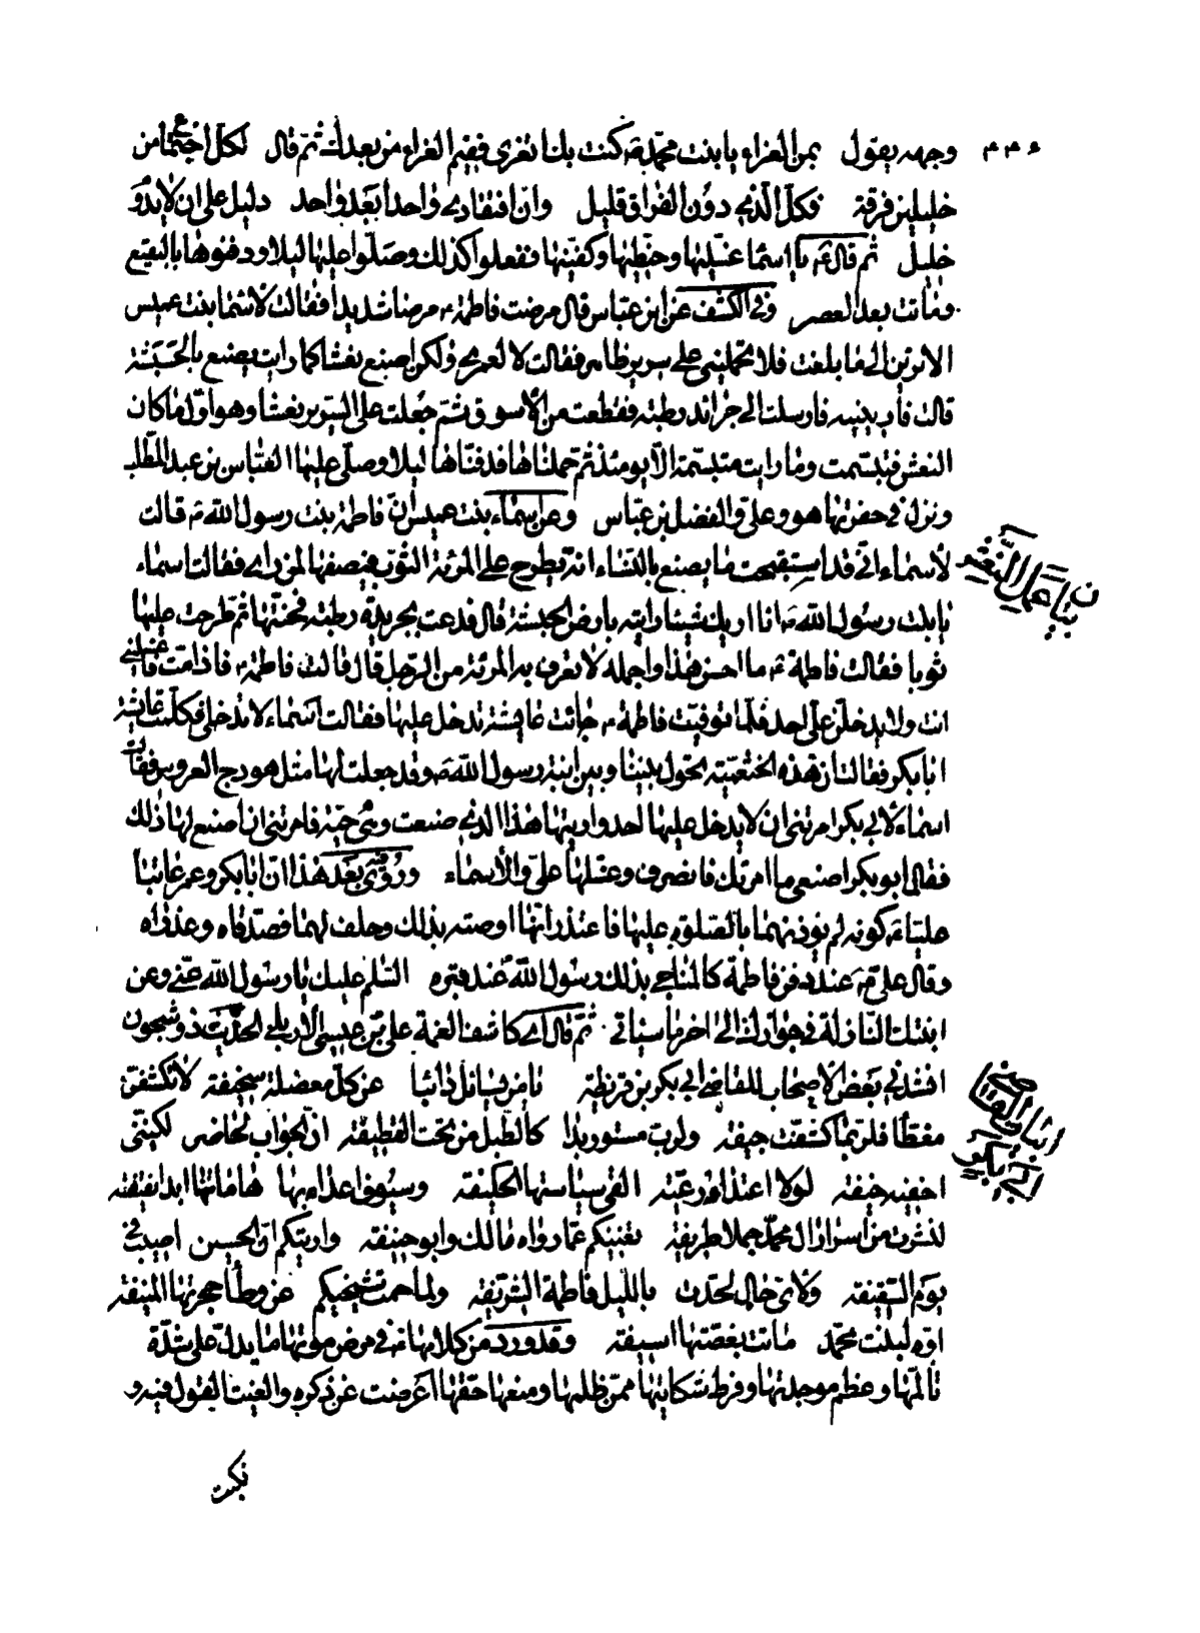 وجهه يقول بمن العزاء يا بنت محمد ص كنت بك اتعزى ففيم العزاء من بعدك ثم قال لكل اجتماع من
خليلين فرقة فكل الذي دون الفراق قليل وان افتقادي واحدا بعد واحد دليل على ان لا يدوم
خليل ثم قال ع يا اسما غسليها وحنطيها وكفنيها ففعلوا كذلك وصلوا عليها ليلا ودفنوها بالبقيع
وماتت بعد العصر وفي الكشف عن ابن عباس قال مرضت فاطمة ع مرضا شديدا فقالت لاسما بنت عميس
الا ترين الى ما بلغت فلا تحمليني على سرير ظاهر فقالت لا لعمري ولكن اصنع نعشا كما رايت يصنع بالحبشة
قالت فارينيه فارسلت الى جرائد رطبة فقطعت من الاسوق ثم جعلت على السرير نعشا وهو اول ما كان
النعش فتبسمت وما رايت متبسمة الا يومئذ ثم حملناها فدفناها ليلا وصلى عليها العباس بن عبد المطلب
ونزل في حفرتها هو وعلي والفضل بن عباس وعن اسماء بنت عميس ان فاطمة بنت رسول الله ص قالت
لاسماء اني قد استقبحت ما يصنع بالنساء انه يطرح على المرئة الثوب فيصفها لمن راى فقالت اسماء
يا بنت رسول الله ص انا اريك شيئا رايته بارض الحبشة قال فدعت بجريدة رطبة فحنتها ثم طرحت عليها
ثوبا فقالت فاطمة ع ما احسن هذا واجمله لا تعرف به المرئة من الرجل قال قالت فاطمة ع فاذا مت فاغسليني
انت ولا يدخلن علي احد فلما توفيت فاطمة ع جائت عايشة تدخل عليها فقالت اسماء لا تدخلي فكلمت عايشة
ابا بكر فقالت ان هذه الخثعمية تحول بيننا وبين ابنة رسول الله ص وقد جعلت لها مثل هودج العروس فقالت
اسماء لابي بكر امرتني ان لا يدخل عليها احد واريتها هذا الذي صنعت وهي حية فامرتني ان اصنع لها ذلك
فقال ابو بكر اصنعي ما امرتك فانصرف وغسلها علي والاسماء وروى بعد هذا ان ابا بكر وعمر عاتبا
عليا ع كونه لم يؤذنهما بالصلوة عليها فاعتذر انها اوصته بذلك وحلف لهما فصدقاه وعذراه
وقال علي ع عند دفن فاطمة كالمناجي بذلك رسول الله عند قبره السلم عليك يا رسول الله عني وعن
ابنتك النازلة في جوارك الى اخر ما سياتي ثم قال اي كاشف الغمة علي بن عيسى الاربلي الحديث ذو شجون
انشدني بعض الاصحاب للقاضي ابي بكر بن قريظة يا من يسائل دائبا عن كل معضلة سخيفة لا تكشفن
مغطأ فلربما كشفت جيفة ولرب مستور بدا كالطبل من تحت القطيفة ان الجواب لحاضر لكنني
اخفيه خيفة لولا اعتذار رعية القى سياستها الخليفة وسيوف اعداء بها هاماتنا ابدا نقيفة
لنشرت من اسرار ال محمد جملا طريفة تغنيكم عما رواه مالك وابو حنيفة واريتكم ان الحسين اصيب في
يوم السقيفة ولاي حال لحدت بالليل فاطمة الشريفة ولما حمت شيخيكم عن وطأ حجرتها المنيفة
اوه لبنت محمد ماتت بغصتها اسيفة وقد ورد من كلامها ع في مرض موتها ما يدل على شدة
تالمها وعظم موجدتها وفرط شكايتها ممن ظلمها ومنعها حقها اعرضت عن ذكره والغيت القول فيه و
نكبت
بيان عمل النعش
ابيات القاضي
ابي بكر